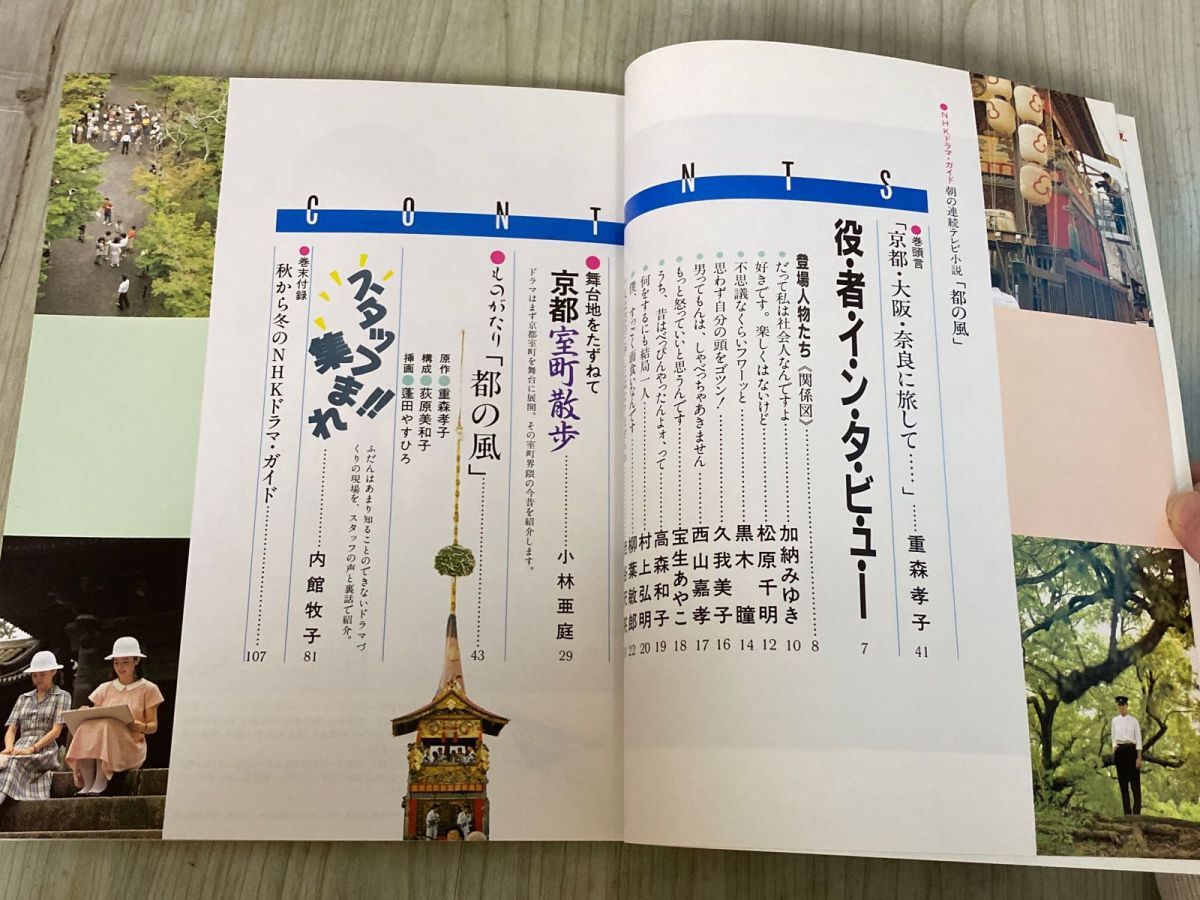 ●NHKドラマ・ガイド 朝の連続テレビ小説「都の風」
CONTENTS
●巻頭言
「京都・大阪・奈良に旅して……」 重森孝子 41
役・者・イ・ン・タ・ビ・ュー 7
登場人物たち《関係図》 8
●だって私は社会人なんですよ 加納みゆき 10
●好きです。楽しくはないけど 松原千明 12
●不思議なくらいフワーッと 黒木瞳 14
●思わず自分の頭をゴツン! 久我美子 16
●男ってもんは、しゃべっちゃあきません 西山嘉孝 17
●もっと怒っていいと思うんです 宝生あやこ 18
●うち、昔はべっぴんやったんよォ、って 高森和子 19
●何をするにも結局一人 村上弘明 20
●僕、すっごく面食いなんです 柳葉敏郎 22
●舞台地をたずねて
京都室町散歩 小林亜庭 29
ドラマはまず京都室町を舞台に展開。その室町界隈の今昔を紹介します。
●ものがたり「都の風」 43
原作●重森孝子
構成●荻原美和子
挿画●蓬田やすひろ
スタッフ集まれ!! 内館牧子 81
ふだんはあまり知ることのできないドラマづ
くりの現場を、スタッフの声と裏話で紹介。
●巻末付録
秋から冬のNHKドラマ・ガイド 107